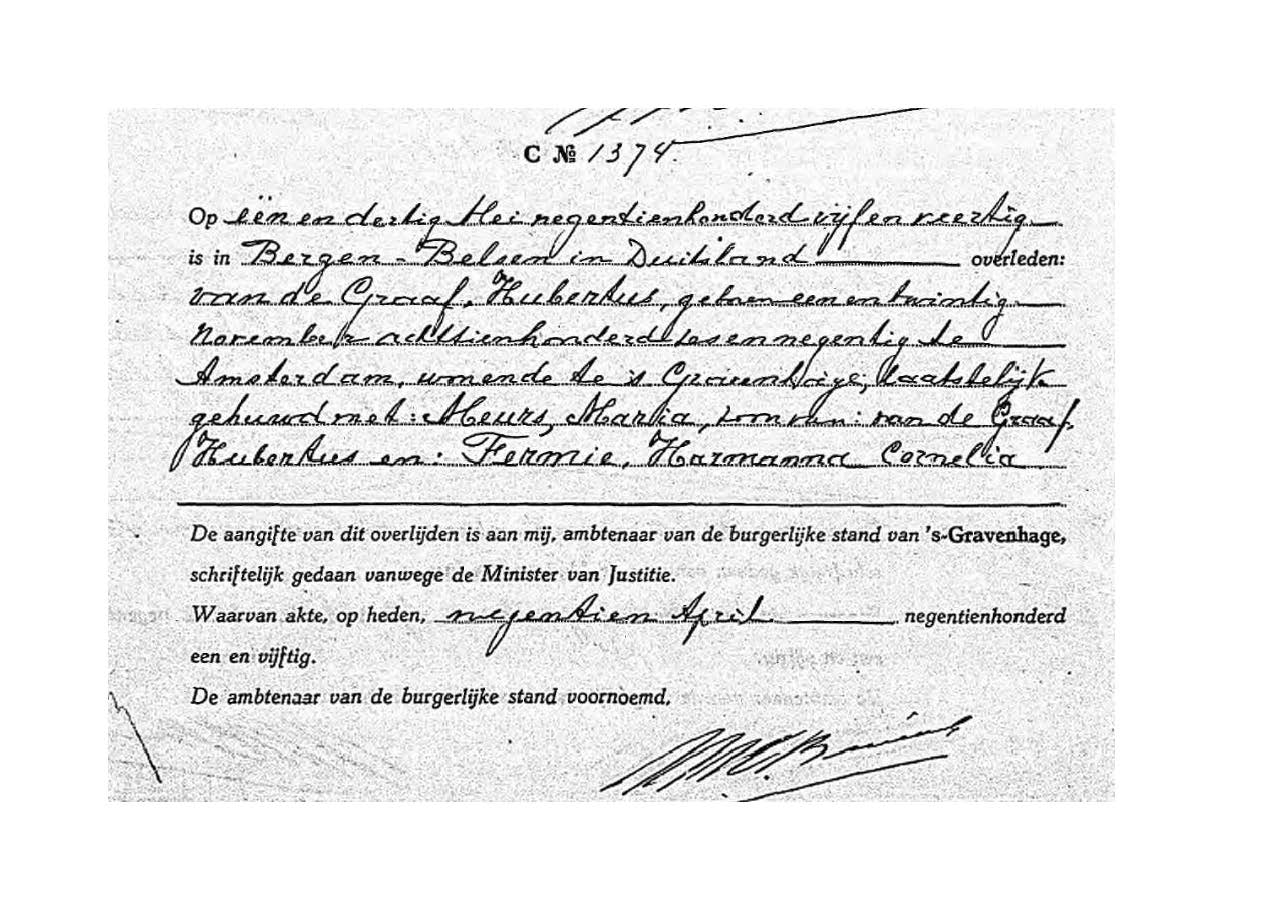 C № 1374.
Op één en dertig Mei negentienhonderd vijf en veertig
is in Bergen - Belsen in Duitsland overleden:
van de Graaf, Hubertus, geboren een en twintig
November achttienhonderd zes en negentig te
Amsterdam, wonende te 's Gravenhage, laatstelijk
gehuwd met: Meurs, Maria, zoon van: van de Graaf,
Hubertus en: Fermie, Harmanna Cornelia
De aangifte van dit overlijden is aan mij, ambtenaar van de burgerlijke stand van 's-Gravenhage,
schriftelijk gedaan vanwege de Minister van Justitie.
Waarvan akte, op heden, negentien April negentienhonderd
een en vijftig.
De ambtenaar van de burgerlijke stand voornoemd,